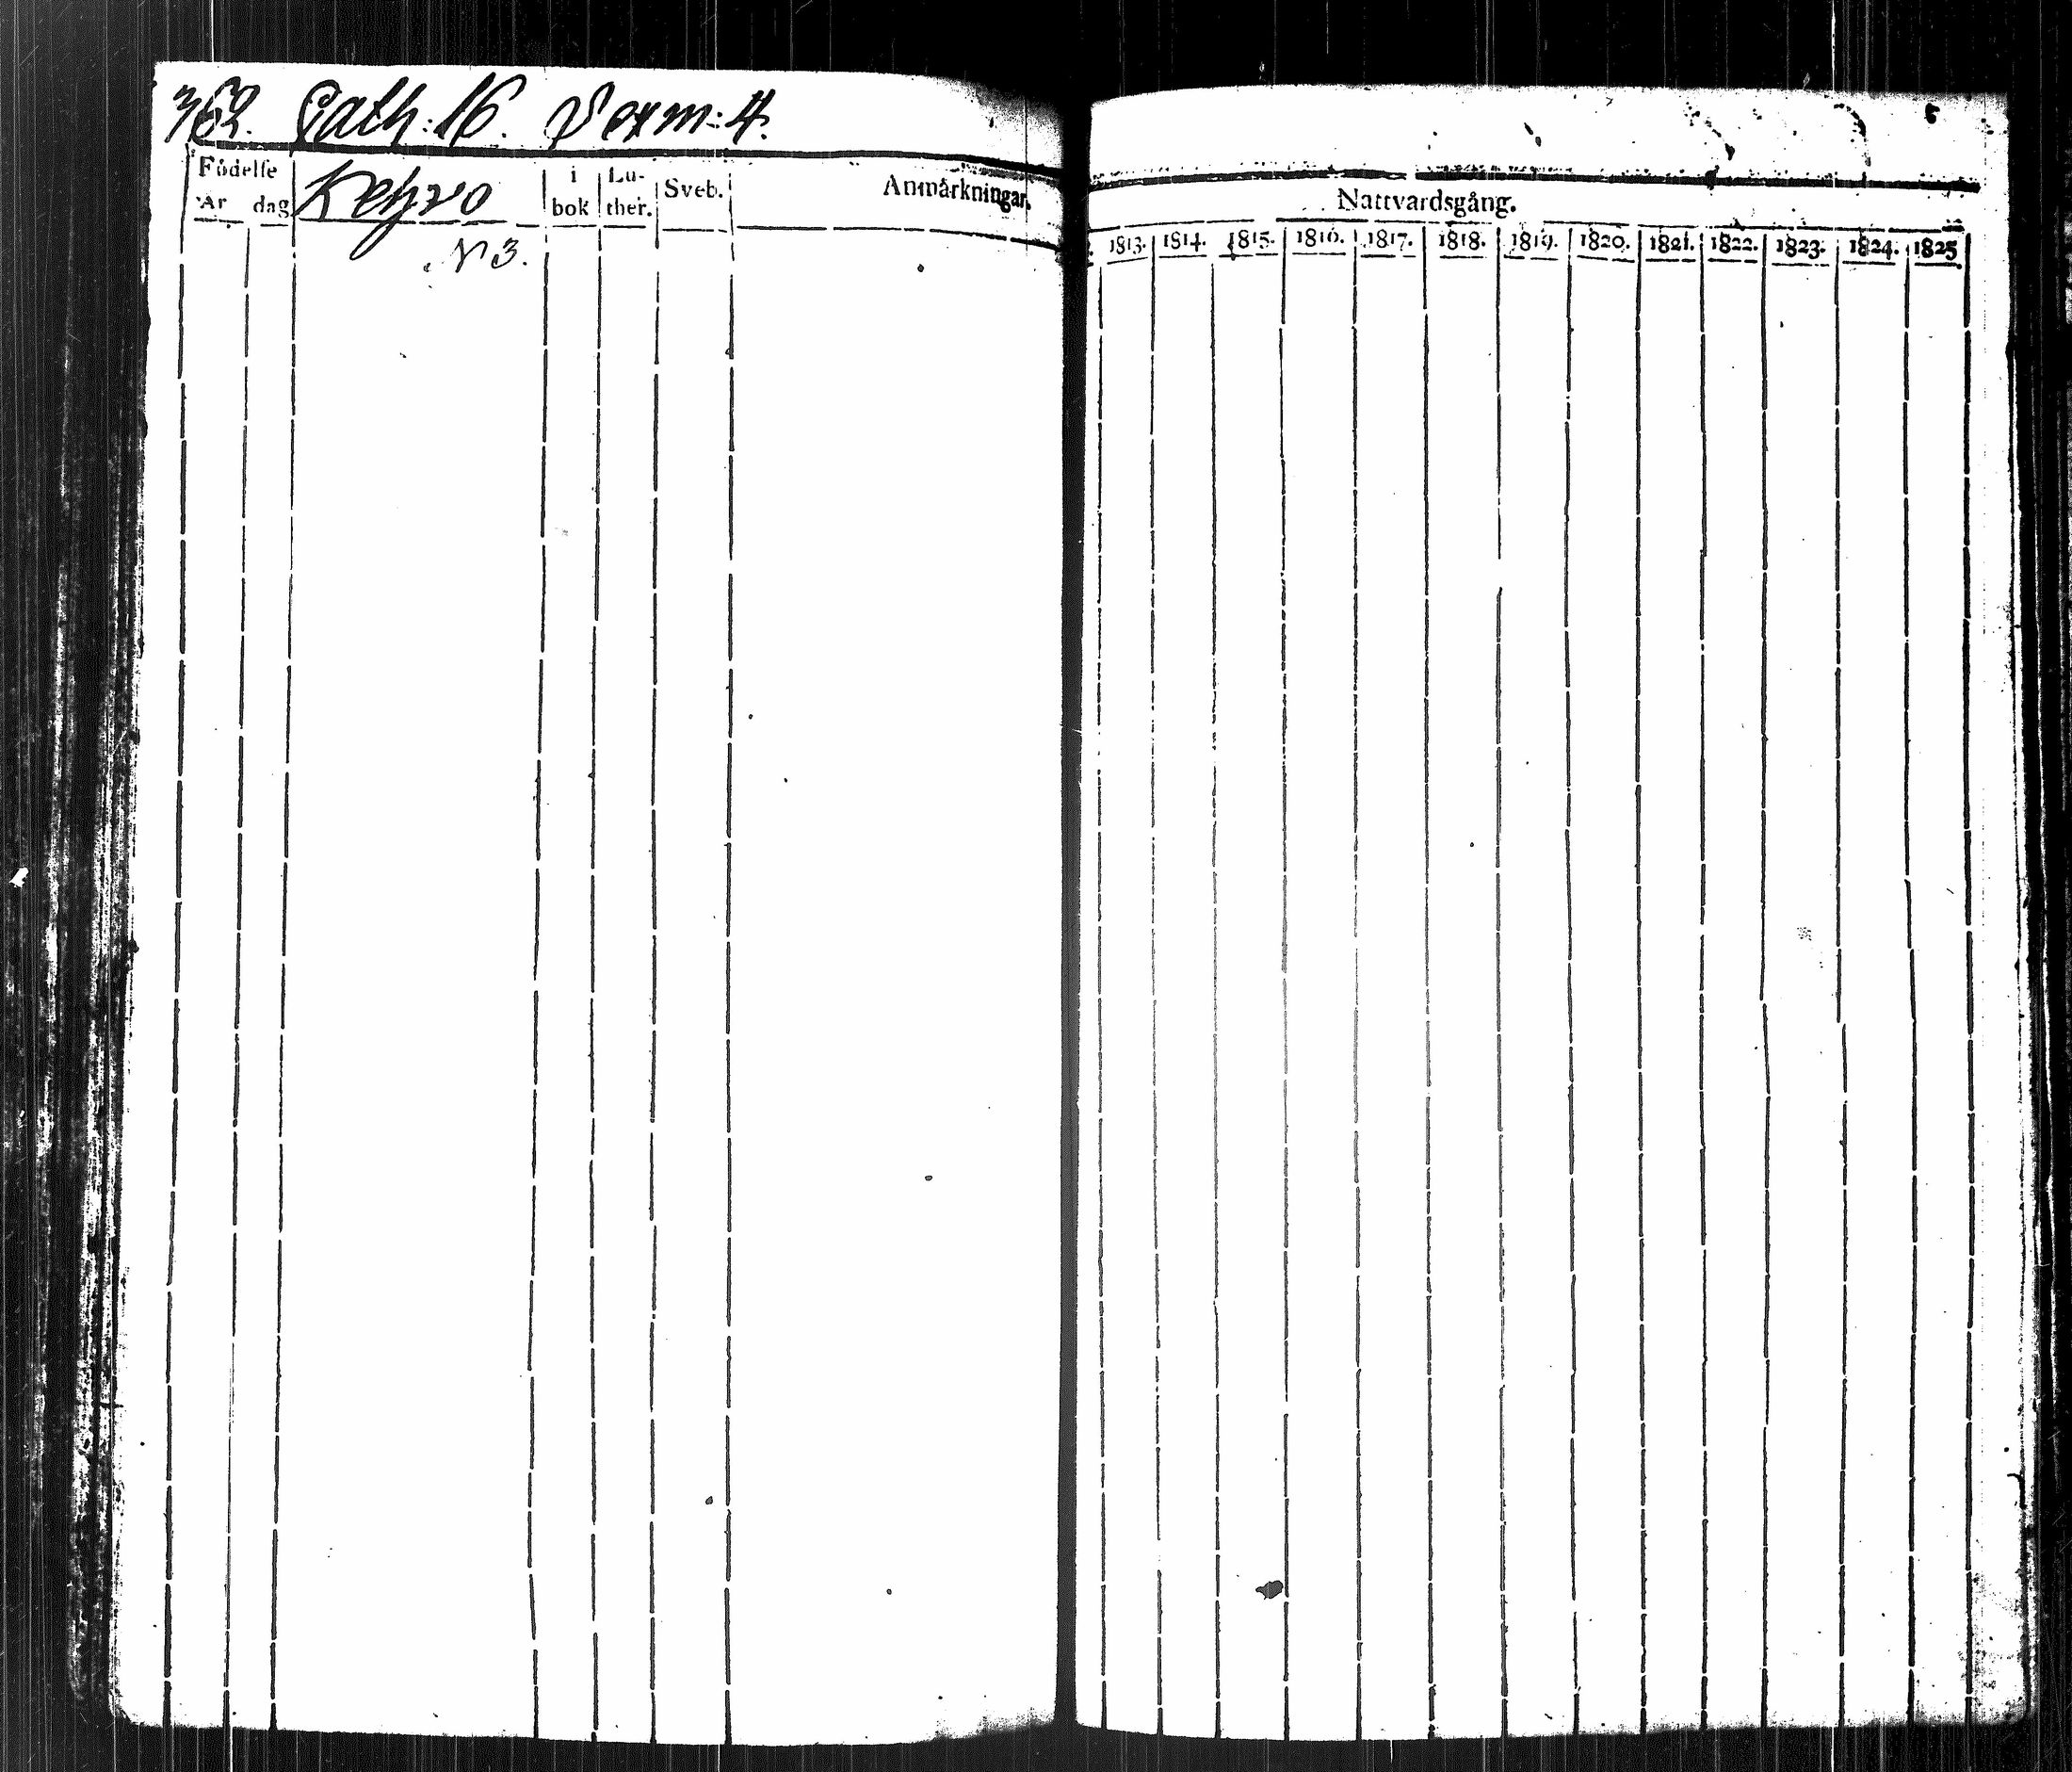 362. Cath: 16. Sexm: 4.
Födelse
År dag
Kehvo
N 3.
i bok
Lu-ther.
Sveb.
Anmärkningar.
Nattvardsgång.
1813. 1814. 1815. 1816. 1817. 1818. 1819. 1820. 1821. 1822. 1823. 1824. 1825